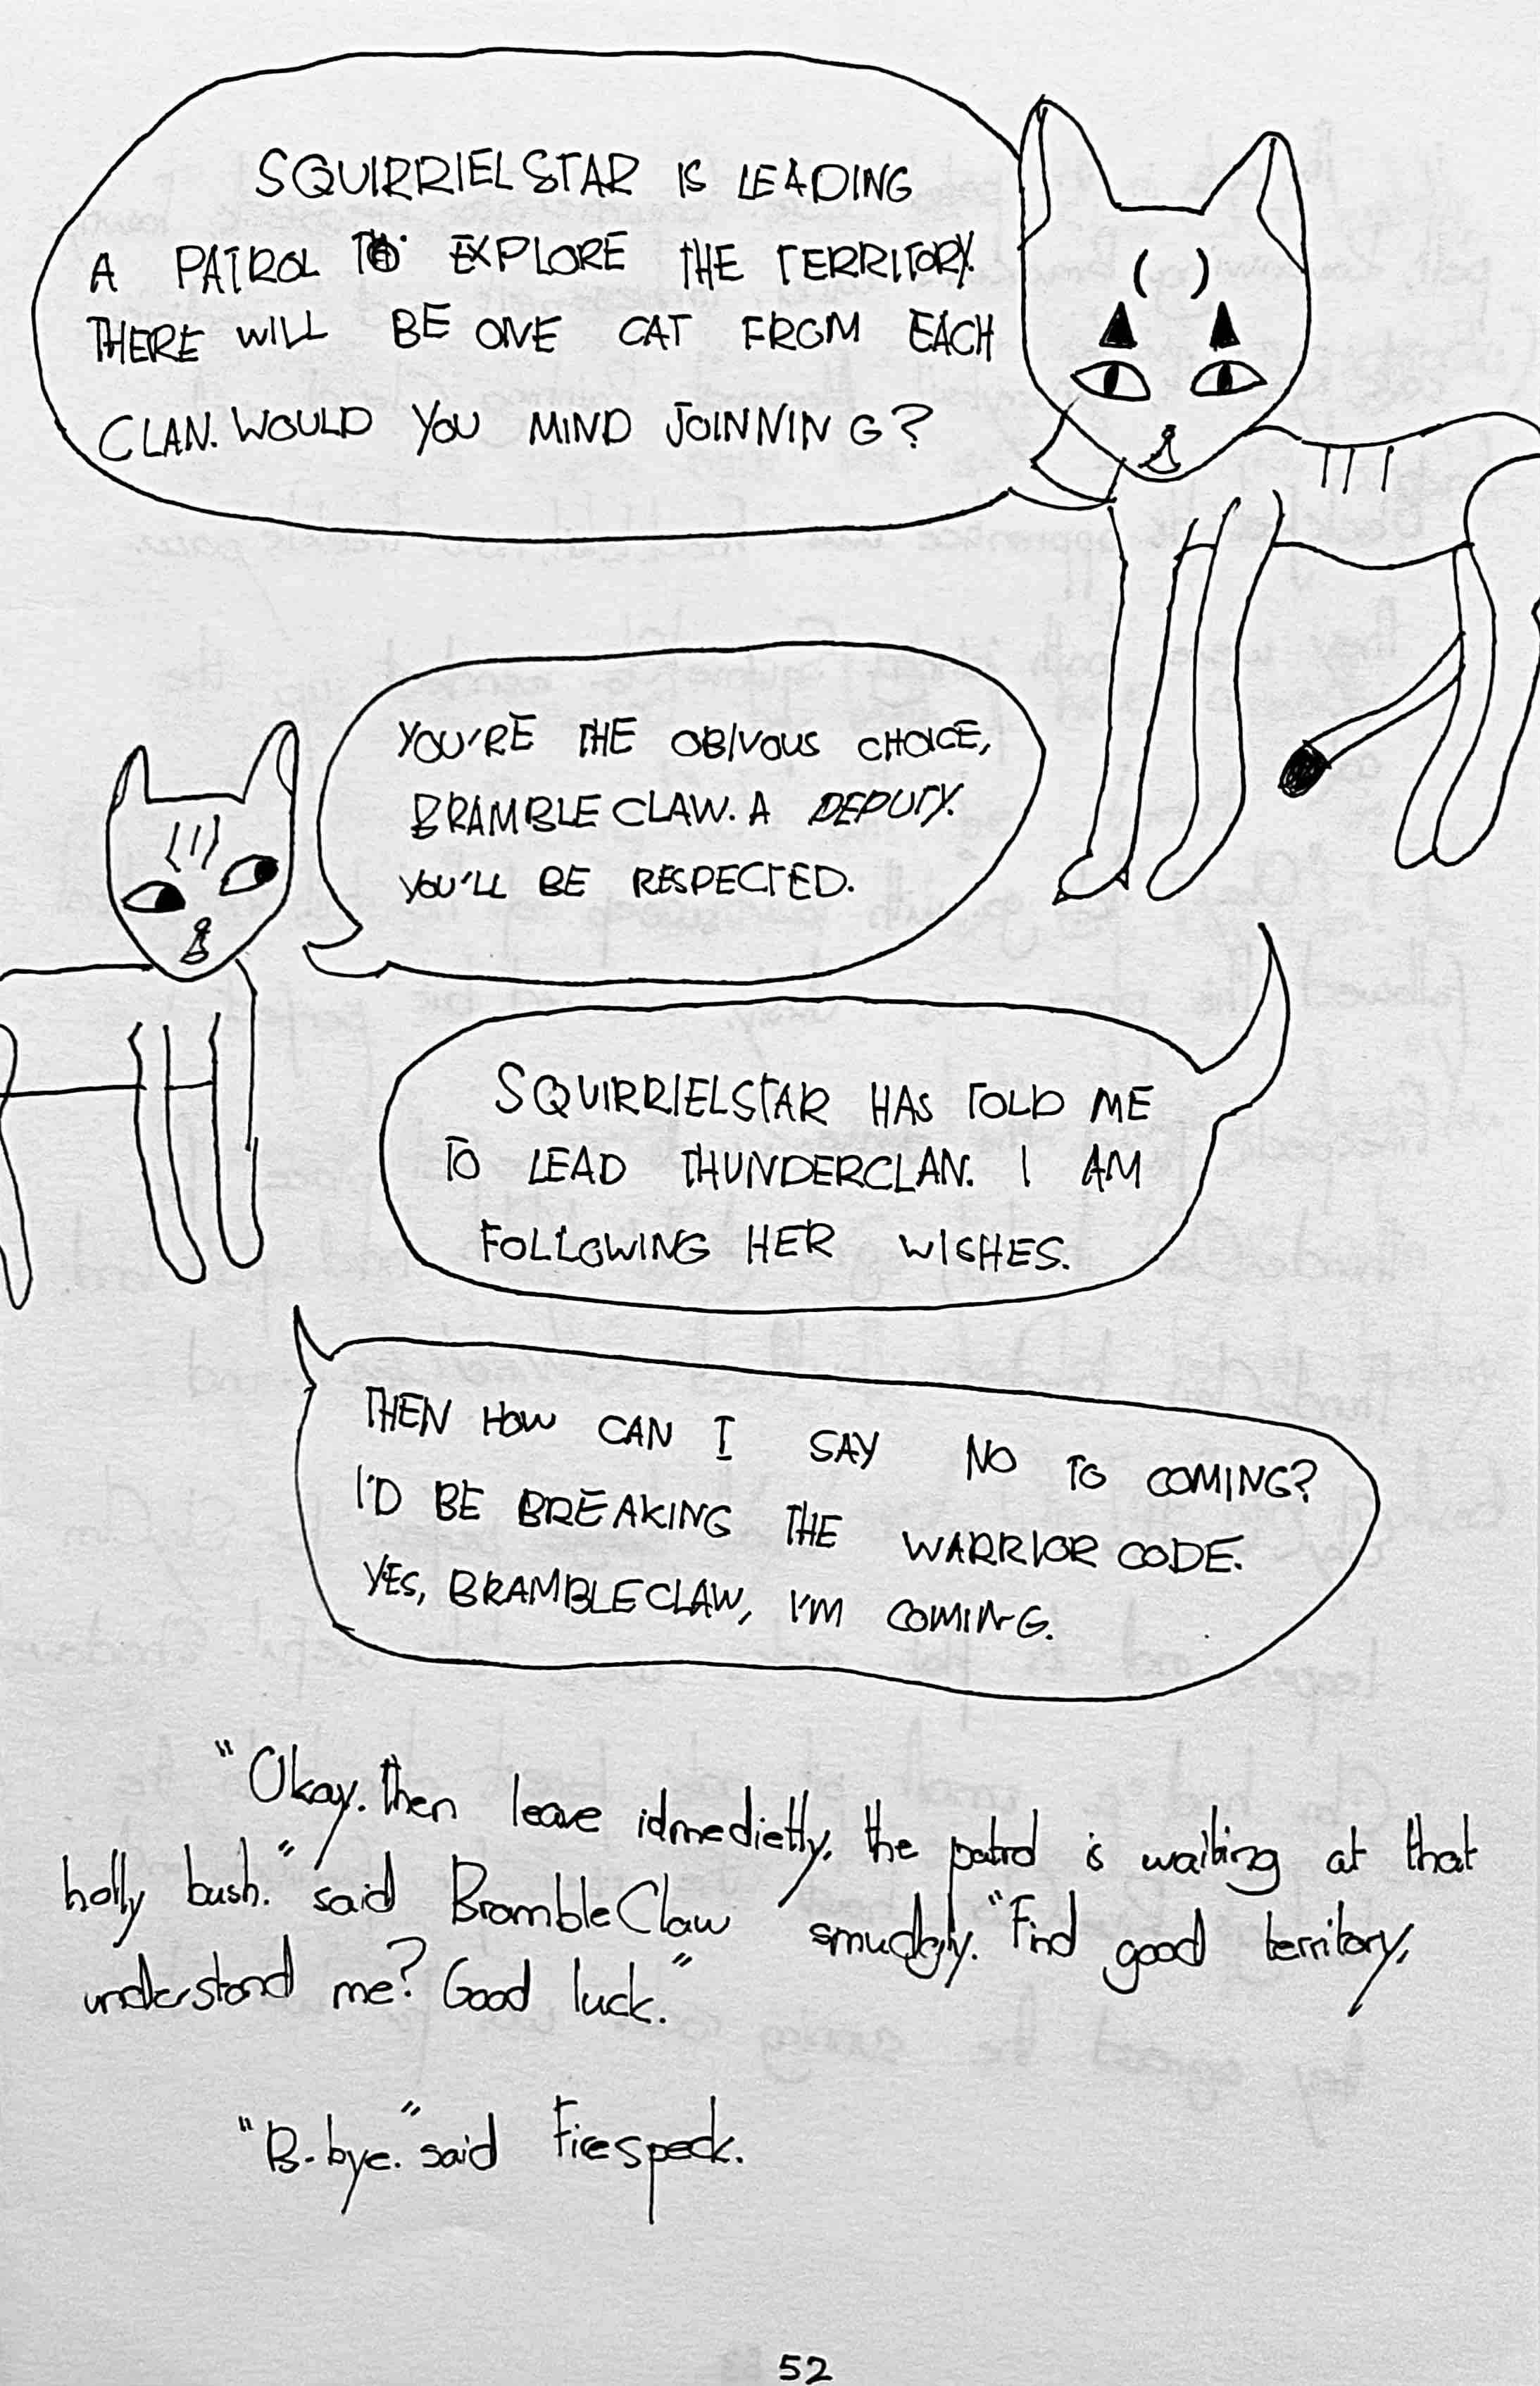 SQUIRRIELSTAR IS LEADING
A PATROL TO EXPLORE THE TERRITORY.
THERE WILL BE ONE CAT FROM EACH
CLAN. WOULD YOU MIND JOINNING?
YOU'RE THE OBIVOUS CHOICE,
BRAMBLECLAW. A DEPUTY.
YOU'LL BE RESPECTED.
SQUIRRIELSTAR HAS TOLD ME
TO LEAD THUNDERCLAN. I AM
FOLLOWING HER WISHES.
THEN HOW CAN I SAY NO TO COMING?
I'D BE BREAKING THE WARRIOR CODE.
YES, BRAMBLECLAW, I'M COMING.
"Okay. then leave idmedietly, the patrol is waiting at that
holly bush." said BrambleClaw smudgly. "Find good territory,
understand me? Good luck."
"B-bye." said Firespeck.
52